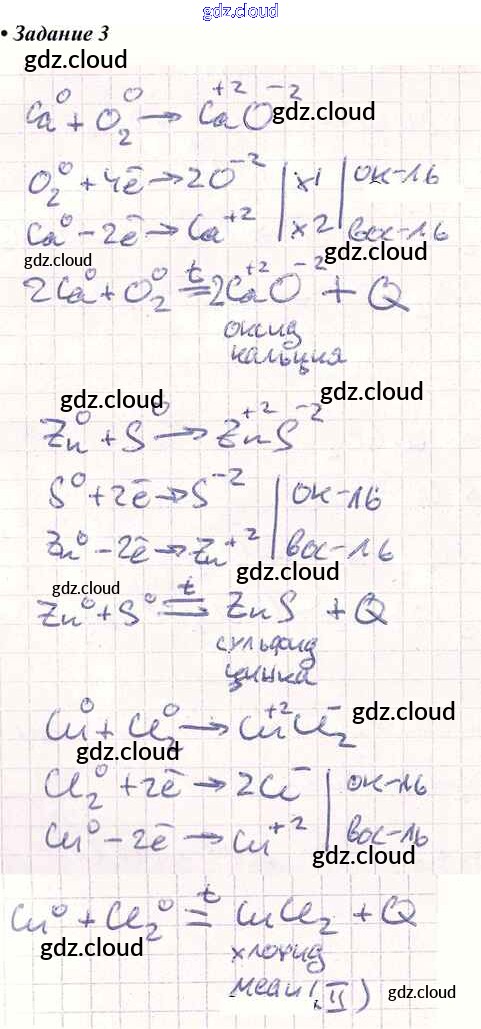 gdz.cloud
• Задание 3
gdz.cloud
Ca⁰ + O₂⁰ → Ca⁺²O⁻² gdz.cloud
O₂⁰ + 4ē → 2O⁻² | x1 | ок-ль
Ca⁰ - 2ē → Ca⁺² | x2 | вос-ль
gdz.cloud gdz.cloud
2Ca⁰ + O₂⁰ =ᵗ 2Ca⁺²O⁻² + Q
оксид
кальция
gdz.cloud gdz.cloud
Zn⁰ + S⁰ → Zn⁺²S⁻²
S⁰ + 2ē → S⁻² | ок-ль
Zn⁰ - 2ē → Zn⁺² | вос-ль
gdz.cloud gdz.cloud
Zn⁰ + S⁰ =ᵗ ZnS + Q
сульфид
цинка
gdz.cloud
Cu⁰ + Cl₂⁰ → Cu⁺²Cl₂⁻
gdz.cloud
Cl₂⁰ + 2ē → 2Cl⁻ | ок-ль
Cu⁰ - 2ē → Cu⁺² | вос-ль
gdz.cloud
Cu⁰ + Cl₂⁰ =ᵗ CuCl₂ + Q
gdz.cloud хлорид
меди (II) gdz.cloud